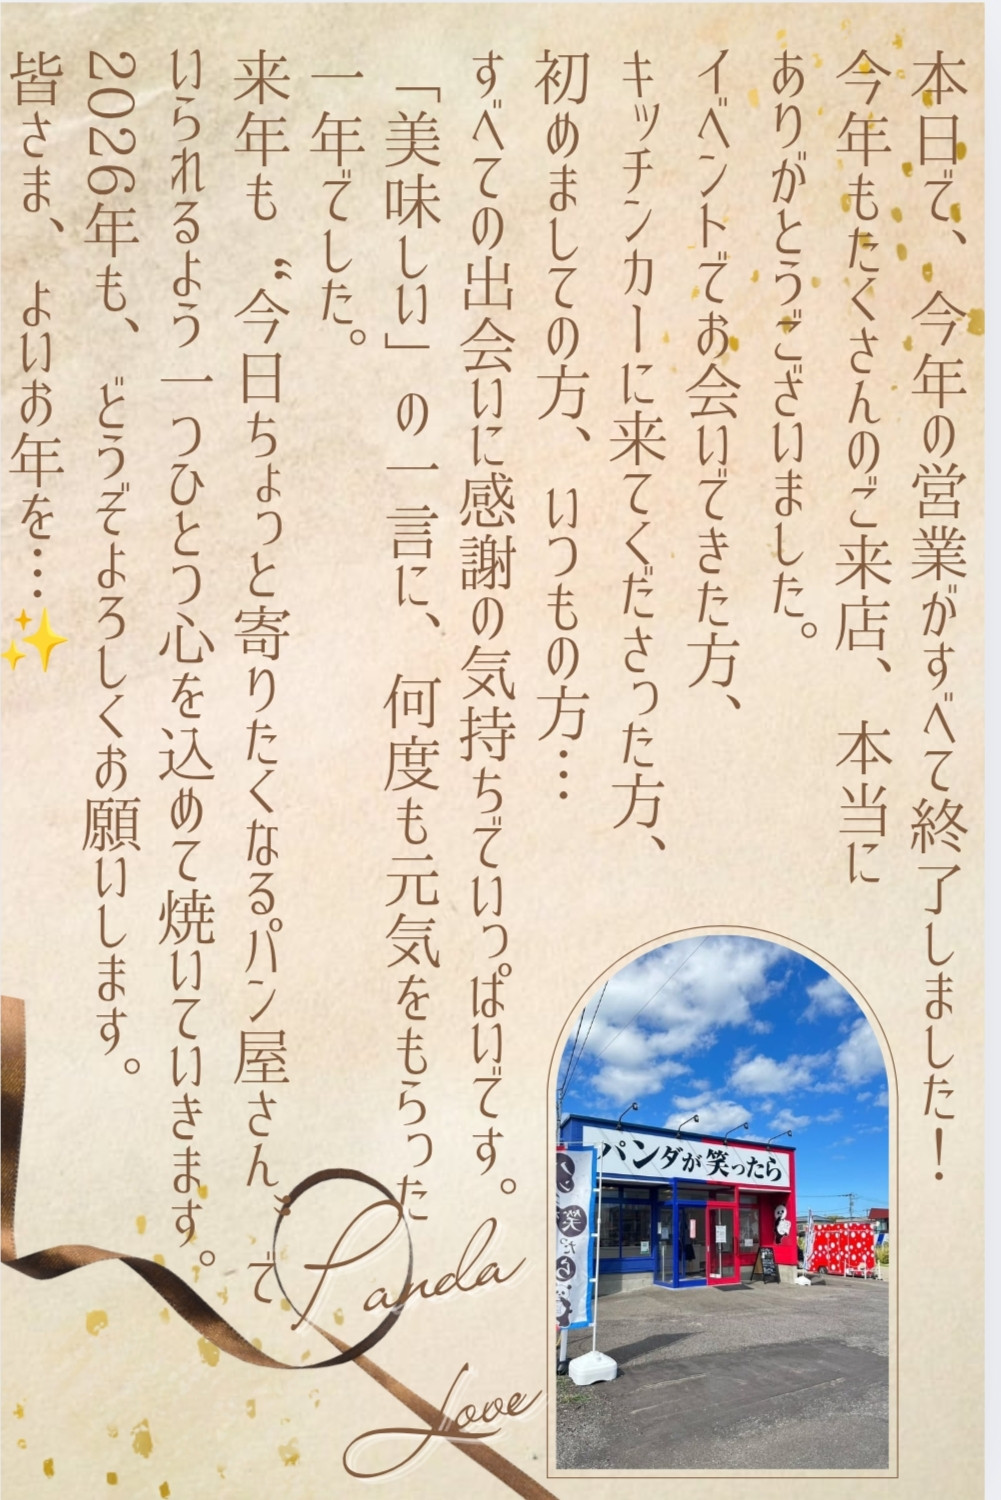 本日で、今年の営業がすべて終了しました!
今年もたくさんのご来店、本当に
ありがとうございました。
イベントでお会いできた方、
キッチンカーに来てくださった方、
初めましての方、いつもの方…
すべての出会いに感謝の気持ちでいっぱいです。
「美味しい」の一言に、何度も元気をもらった
一年でした。
来年も“今日ちょっと寄りたくなるパン屋さん”で
いられるよう一つひとつ心を込めて焼いていきます。
2026年も、どうぞよろしくお願いします。
皆さま、よいお年を…✨
Panda
Love
パンダが笑ったら